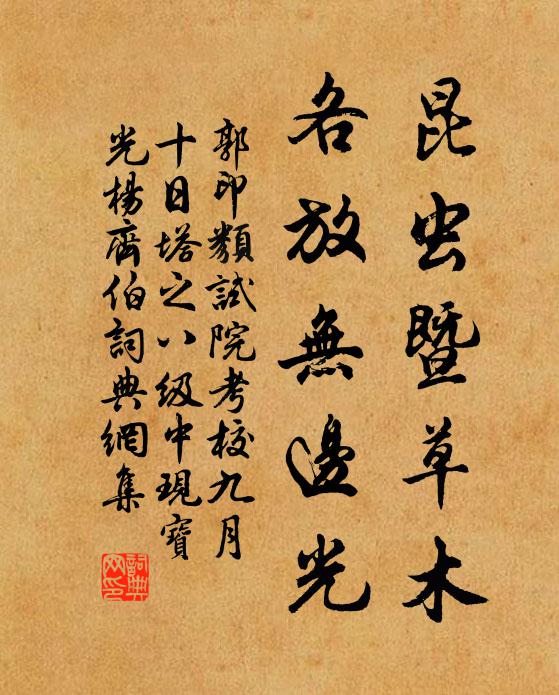 昆虫暨草木
各放無邊光
郭印類試院考校九月
十日塔之八級中現寶
光楊齊伯詞典網集
詞典网印